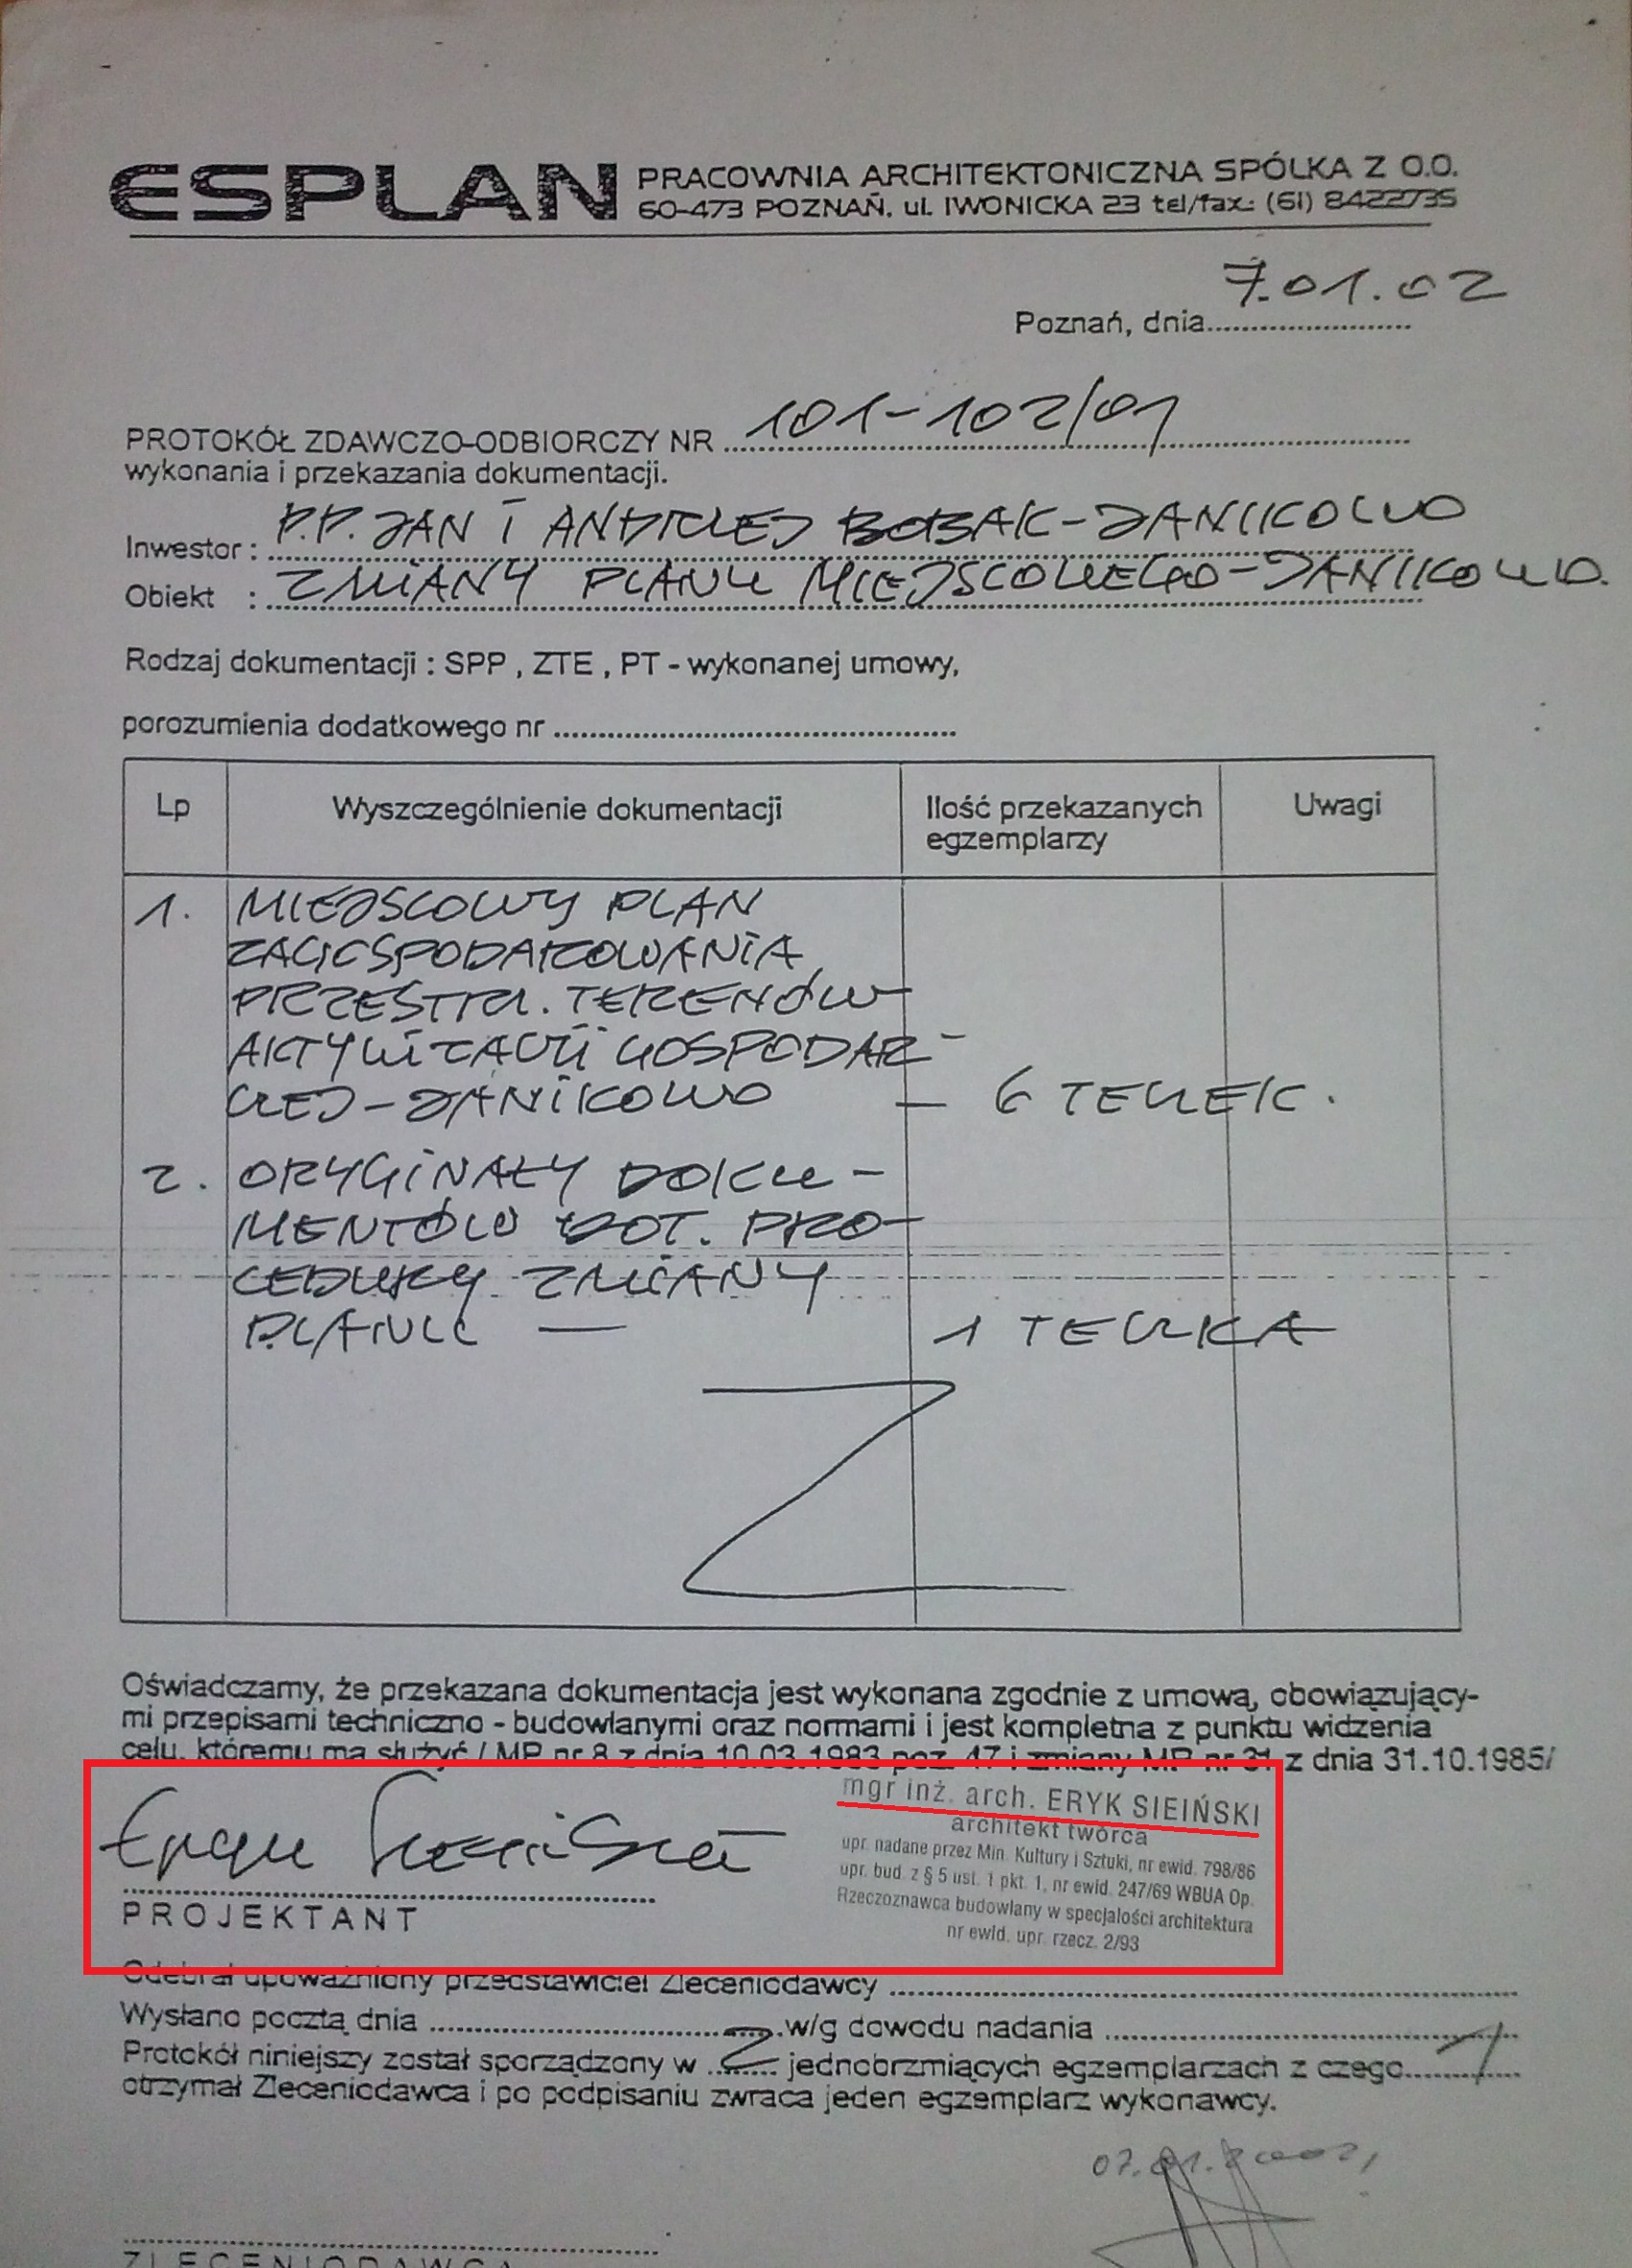 ESPLAN PRACOWNIA ARCHITEKTONICZNA SPÓŁKA Z O.O.
60-473 POZNAŃ, ul. IWONICKA 23 tel/fax.: (61) 8422735
7.01.02
Poznań, dnia
101-102/01
PROTOKÓŁ ZDAWCZO-ODBIORCZY NR
wykonania i przekazania dokumentacji.
Inwestor : P.P. JAN I ANDRZEJ BOBAK-JANIKOWO
Obiekt : ZMIANY PLANU MIEJSCOWEGO-JANIKOWO.
Rodzaj dokumentacji : SPP , ZTE , PT - wykonanej umowy,
porozumienia dodatkowego nr
Lp Wyszczególnienie dokumentacji Ilość przekazanych egzemplarzy Uwagi
1. MIEJSCOWY PLAN
ZAGOSPODAROWANIA
PRZESTRZ. TERENÓW
AKTYWIZACJI GOSPODAR-
CZEJ-JANIKOWO — 6 TECZEK.
2. ORYGINAŁY DOKU-
MENTÓW DOT. PRO-
CEDURY ZMIANY
PLANU — 1 TECZKA
Oświadczamy, że przekazana dokumentacja jest wykonana zgodnie z umową, obowiązujący-
mi przepisami techniczno - budowlanymi oraz normami i jest kompletna z punktu widzenia
celu, któremu ma służyć / MP nr 8 z dnia 10.03.1983 poz. 47 i zmiany MP nr 31 z dnia 31.10.1985/
mgr inż. arch. ERYK SIEIŃSKI
architekt twórca
upr. nadane przez Min. Kultury i Sztuki, nr ewid. 798/86
upr. bud. z § 5 ust. 1 pkt. 1, nr ewid. 247/69 WBUA Op.
Rzeczoznawca budowlany w specjalości architektura
nr ewid. upr. rzecz. 2/93
Eryk Sieiński
PROJEKTANT
Odebrał upoważniony przedstawiciel Zleceniodawcy
Wysłano pocztą dnia w/g dowodu nadania
Protokół niniejszy został sporządzony w 2 jednobrzmiących egzemplarzach z czego 1
otrzymał Zleceniodawca i po podpisaniu zwraca jeden egzemplarz wykonawcy.
07.01.2002,
ZLECENIODAWCA